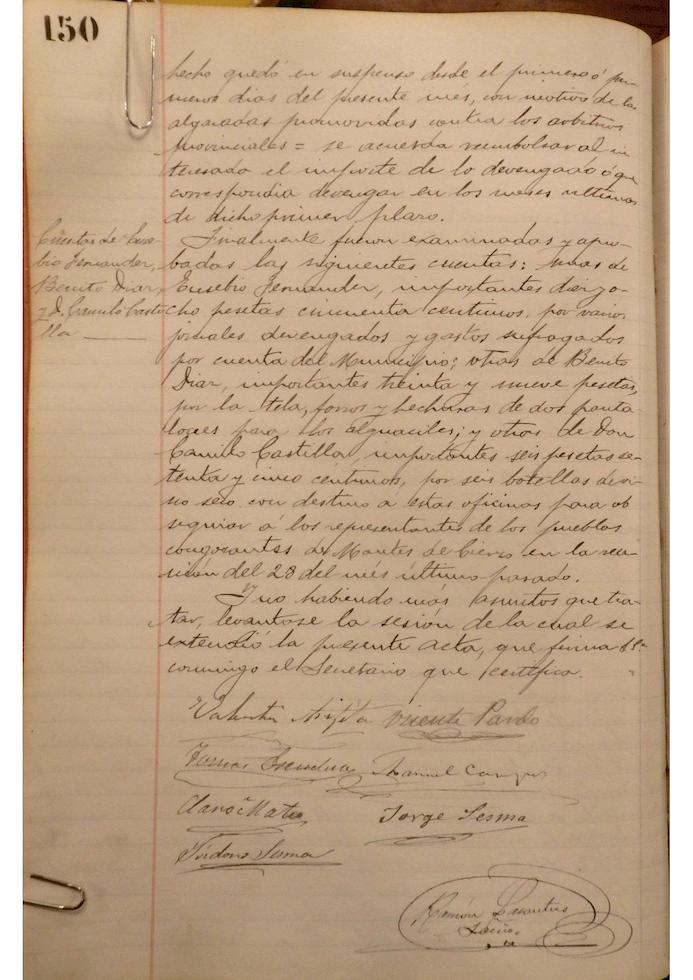 150
hecho quedó en suspenso desde el primero ó pri-
meros dias del presente més, con motivo de las
algaradas promovidas contra los arbitrios
provinciales = se acuerda reembolsar al in-
teresado el importe de lo devengado ó que
correspondia devengar en los meses ultimos
de dicho primer plazo.
Cuentas de Euse-
bio Fernandez,
Benito Diaz,
y D. Camilo Casti-
lla
Finalmente fueron examinadas y apro-
badas las siguientes cuentas: unas de
Eusebio Fernandez, importantes diez y o-
cho pesetas cincuenta centimos, por varios
jornales devengados y gastos sufragados
por cuenta del Municipio; otras de Benito
Diaz, importantes treinta y nueve pesetas,
por la tela, forros y hechuras de dos panta
lones para los alguaciles; y otras de Don
Camilo Castilla, importantes seis pesetas se-
tenta y cinco céntimos, por seis botellas de vi-
no seco con destino á estas oficinas para ob
sequiar á los representantes de los pueblos
congozantes de Montes de Cierzo en la reu-
nión del 28 del més último pasado.
Y no habiendo más asuntos que tra-
tar, levantose la sesión de la cual se
extendió la presente acta, que firma
conmigo el Secretario que certifico.
Vicente Pardo
Manuel
Mateo
Jorge Sesma
Isidoro Sesma
Ramón